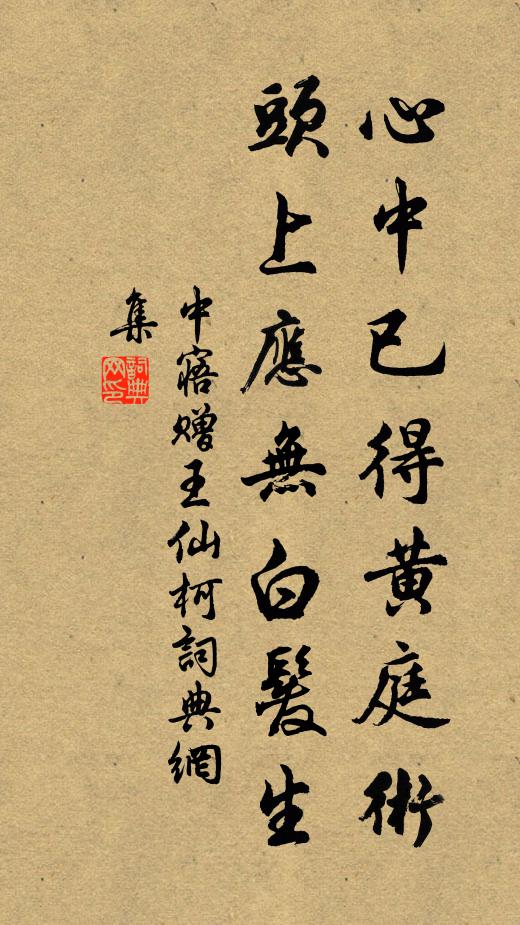 心中已得黃庭術
頭上應無白髮生
中寤贈王仙柯詞典網
集
詞典網印